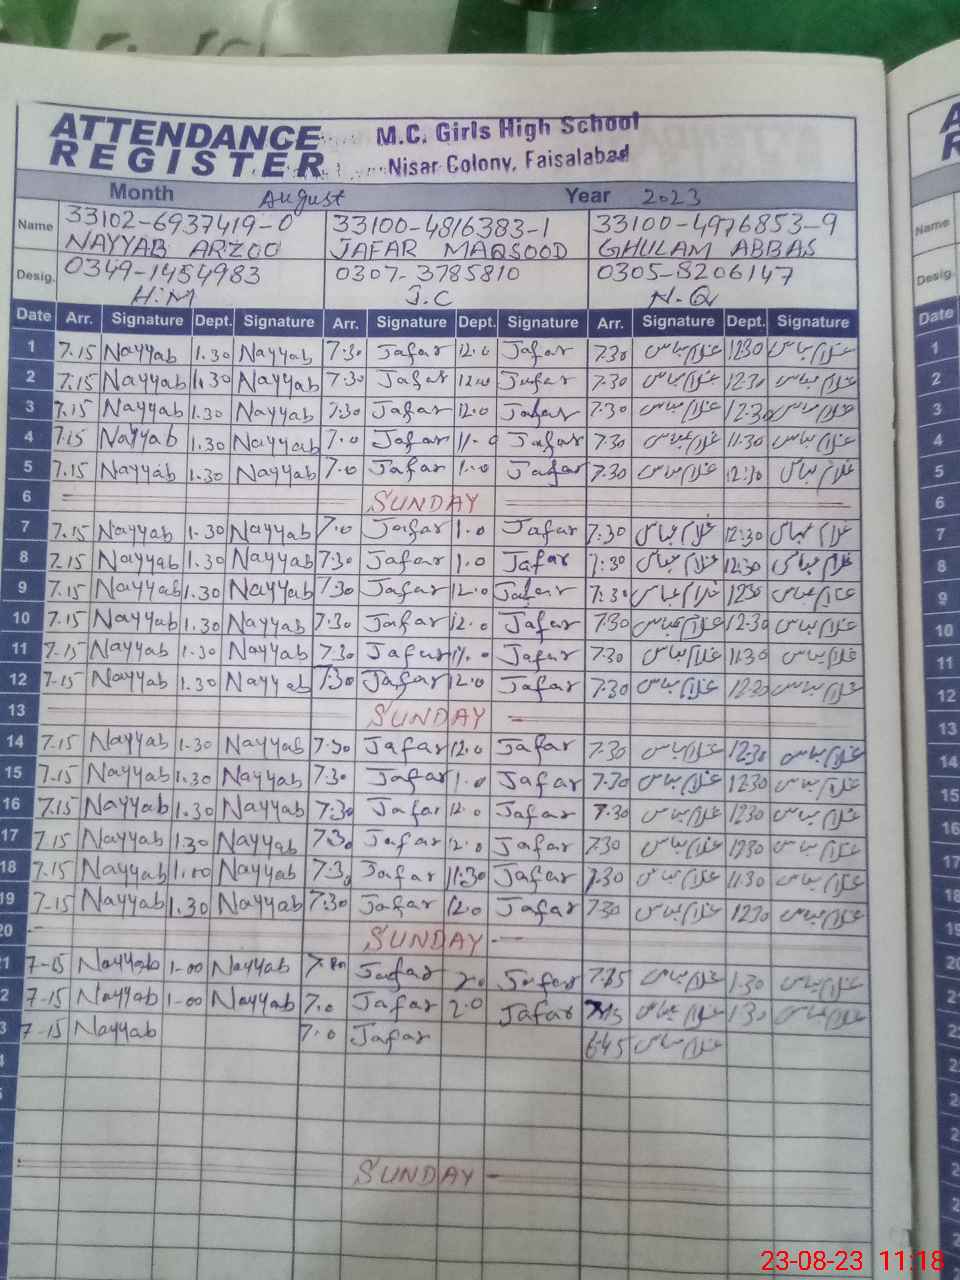 ATTENDANCE REGISTER
M.C. Girls High School
Nisar Colony, Faisalabad
Month August Year 2023
Name 33102-6937419-0 33100-4816383-1 33100-4976853-9
NAYYAB ARZOO JAFAR MAQSOOD GHULAM ABBAS
Desig. 0349-1454983 0307-3785810 0305-8206147
H.M J.C N.Q
Date Arr. Signature Dept. Signature Arr. Signature Dept. Signature Arr. Signature Dept. Signature
1 7.15 Nayyab 1.30 Nayyab 7.30 Jafar 12.0 Jafar 7.30 غلام عباس 12.30 غلام عباس
2 7.15 Nayyab 1.30 Nayyab 7.30 Jafar 12.0 Jafar 7.30 غلام عباس 12.30 غلام عباس
3 7.15 Nayyab 1.30 Nayyab 7.30 Jafar 12.0 Jafar 7.30 غلام عباس 12.30 غلام عباس
4 7.15 Nayyab 1.30 Nayyab 7.0 Jafar 11.0 Jafar 7.30 غلام عباس 11.30 غلام عباس
5 7.15 Nayyab 1.30 Nayyab 7.0 Jafar 1.0 Jafar 7.30 غلام عباس 12.30 غلام عباس
6 SUNDAY
7 7.15 Nayyab 1.30 Nayyab 7.0 Jafar 1.0 Jafar 7:30 غلام عباس 12:30 غلام عباس
8 7.15 Nayyab 1.30 Nayyab 7.30 Jafar 1.0 Jafar 7:30 غلام عباس 12:30 غلام عباس
9 7.15 Nayyab 1.30 Nayyab 7.30 Jafar 12.0 Jafar 7.30 غلام عباس 12.30 غلام عباس
10 7.15 Nayyab 1.30 Nayyab 7.30 Jafar 12.0 Jafar 7.30 غلام عباس 12.30 غلام عباس
11 7-15 Nayyab 1.30 Nayyab 7.30 Jafar 11.0 Jafar 7.30 غلام عباس 11.30 غلام عباس
12 7-15 Nayyab 1.30 Nayyab 7.30 Jafar 12.0 Jafar 7.30 غلام عباس 12.30 غلام عباس
13 SUNDAY
14 7.15 Nayyab 1.30 Nayyab 7.30 Jafar 12.0 Jafar 7.30 غلام عباس 12.30 غلام عباس
15 7-15 Nayyab 1.30 Nayyab 7.30 Jafar 1.0 Jafar 7.30 غلام عباس 12.30 غلام عباس
16 7.15 Nayyab 1.30 Nayyab 7.30 Jafar 12.0 Jafar 7.30 غلام عباس 12.30 غلام عباس
17 7.15 Nayyab 1.30 Nayyab 7.30 Jafar 12.0 Jafar 7.30 غلام عباس 12.30 غلام عباس
18 7.15 Nayyab 1.00 Nayyab 7.30 Jafar 11.30 Jafar 7.30 غلام عباس 11.30 غلام عباس
19 7-15 Nayyab 1.30 Nayyab 7.30 Jafar 12.0 Jafar 7.30 غلام عباس 12.30 غلام عباس
20 SUNDAY
7-15 Nayyab 1-00 Nayyab Jafar 2.0 Jafar غلام عباس 1.30 غلام عباس
7-15 Nayyab 1-00 Nayyab 7.0 Jafar 2.0 Jafar غلام عباس 1.30 غلام عباس
7-15 Nayyab 7.0 Jafar 6.45 غلام عباس
SUNDAY
23-08-23 11:18